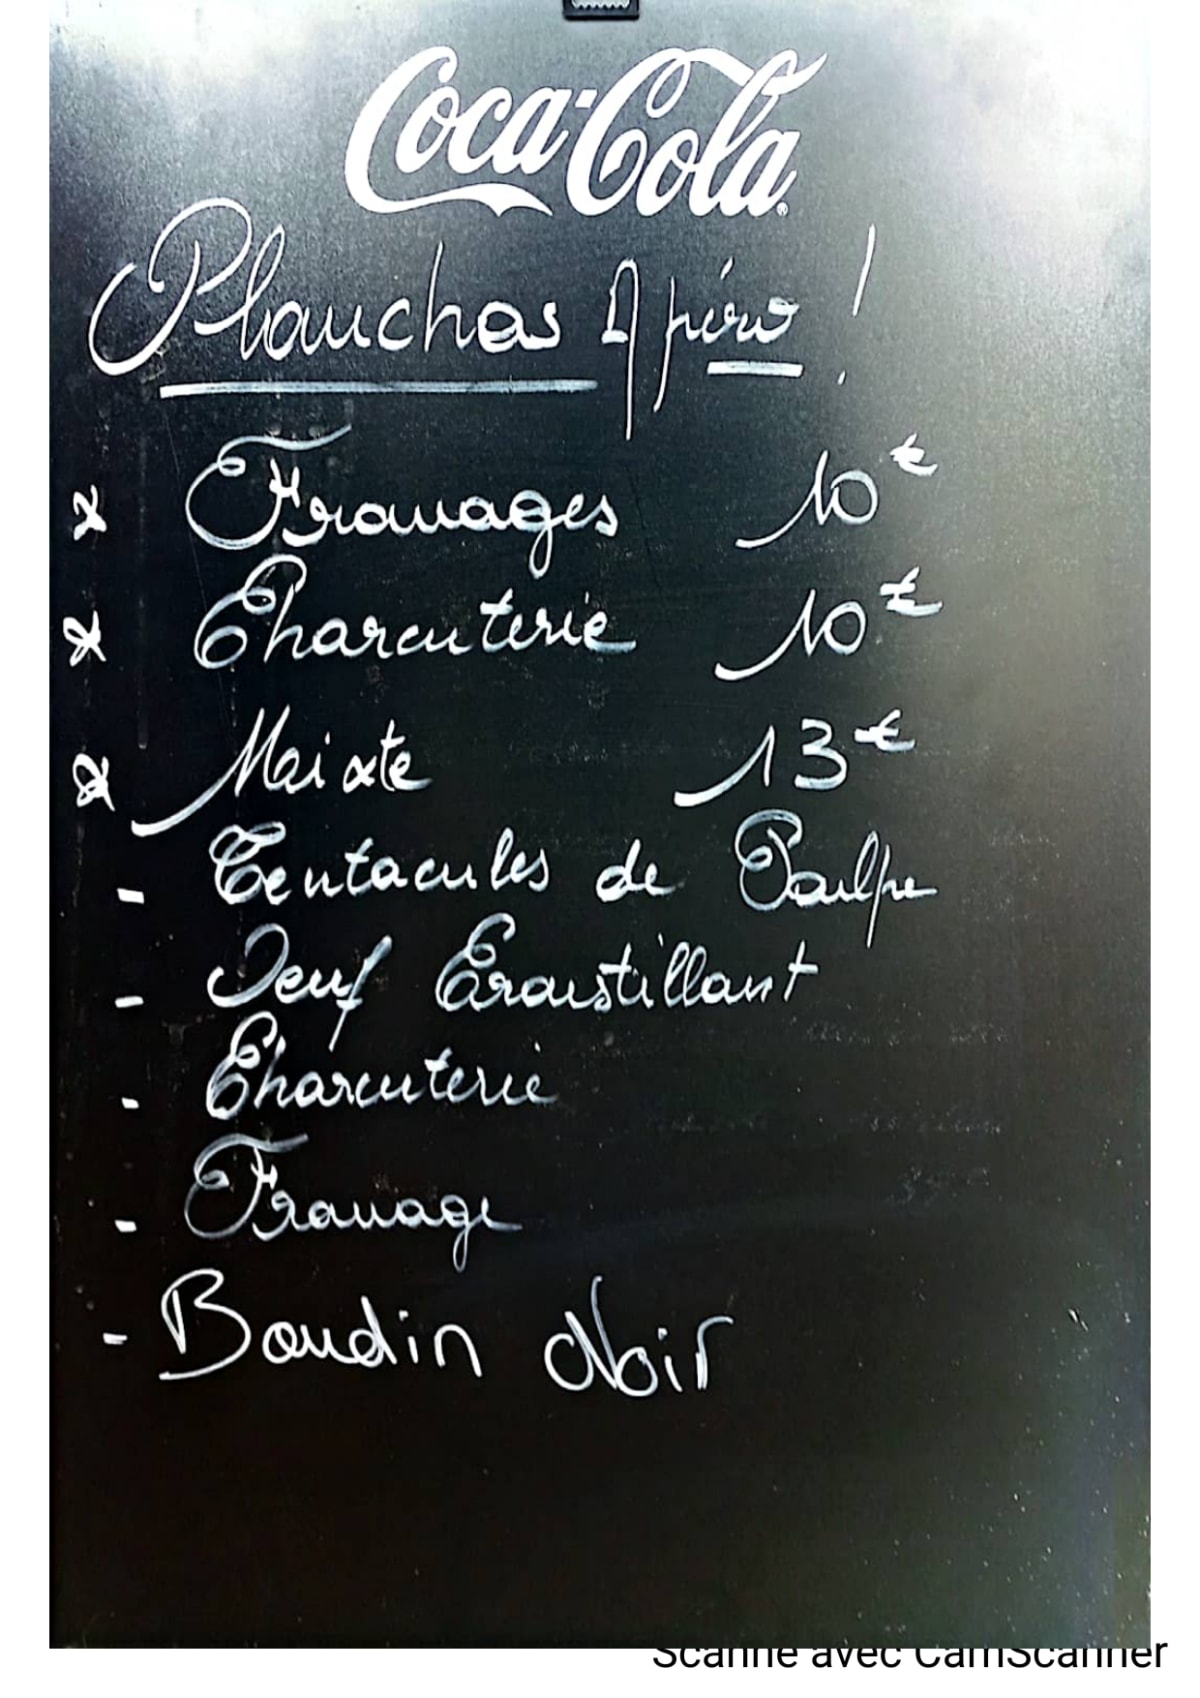 Coca-Cola
Planchas Apéro !
x Fromages 10€
x Charcuterie 10€
x Maixte 13€
- Tentacules de Poulpe
- Oeuf Croustillant
- Charcuterie
- Fromage
- Boudin Noir
Scanné avec CamScanner